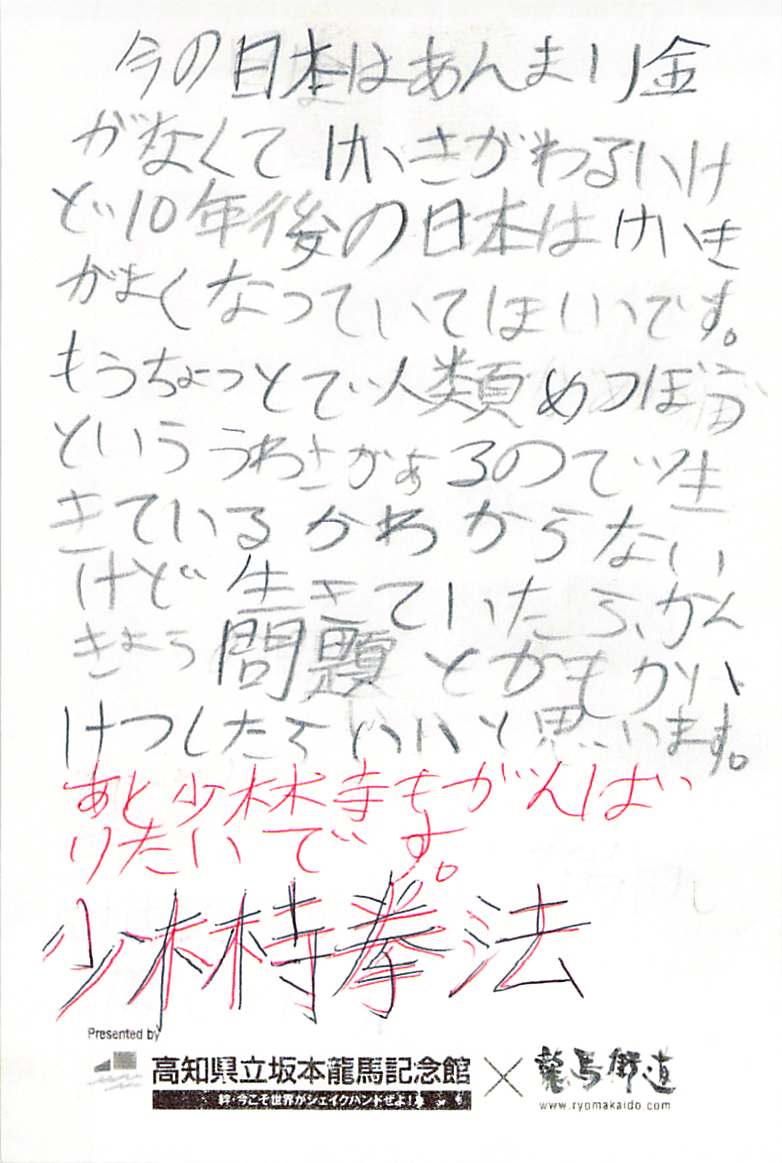 今の日本はあんまり金
がなくてけいきがわるいけ
ど10年後の日本はけいき
がよくなっていてほしいです。
もうちょっとで人類めつぼう
といううわさがあるので生
きているかわからない
けど生きていたら、かん
きょう問題とかもかい
けつしたらいいと思います。
あと少林寺もがんば
りたいです。
少林寺拳法
Presented by
高知県立坂本龍馬記念館×龍馬街道
絆・今こそ世界がシェイクハンドぜよ!
www.ryomakaido.com